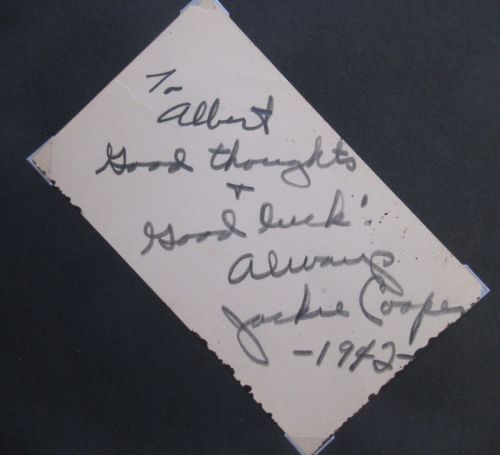 To
Albert
Good thoughts
+
Good luck!
Always
Jackie Cooper
-1942-